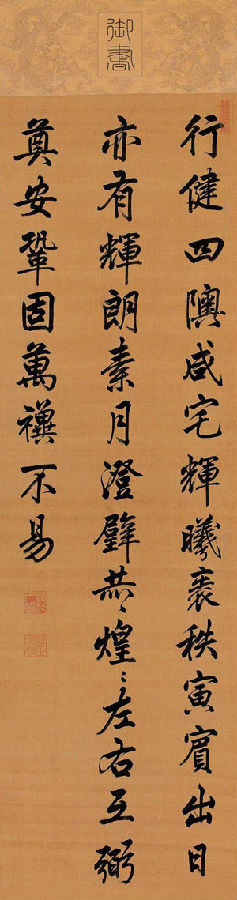 御書
行健四隩咸宅輝曦表秩寅賓出日
亦有輝朗素月澄璧共〻煌〻左右互弼
奠安鞏固萬禩不易